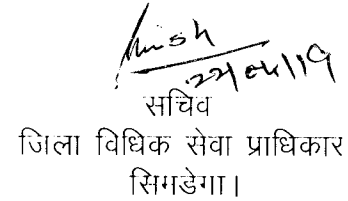 22/04/19
सचिव
जिला विधिक सेवा प्राधिकार
सिमडेगा।